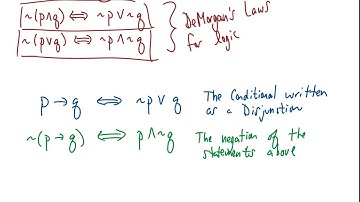 ~(p∧q) ⟺ ~p∨~q
~(p∨q) ⟺ ~p∧~q
DeMorgan's Laws
for logic
p→q ⟺ ~p∨q
The Conditional written
as a Disjunction
~(p→q) ⟺ p∧~q
The negation of the
statements above